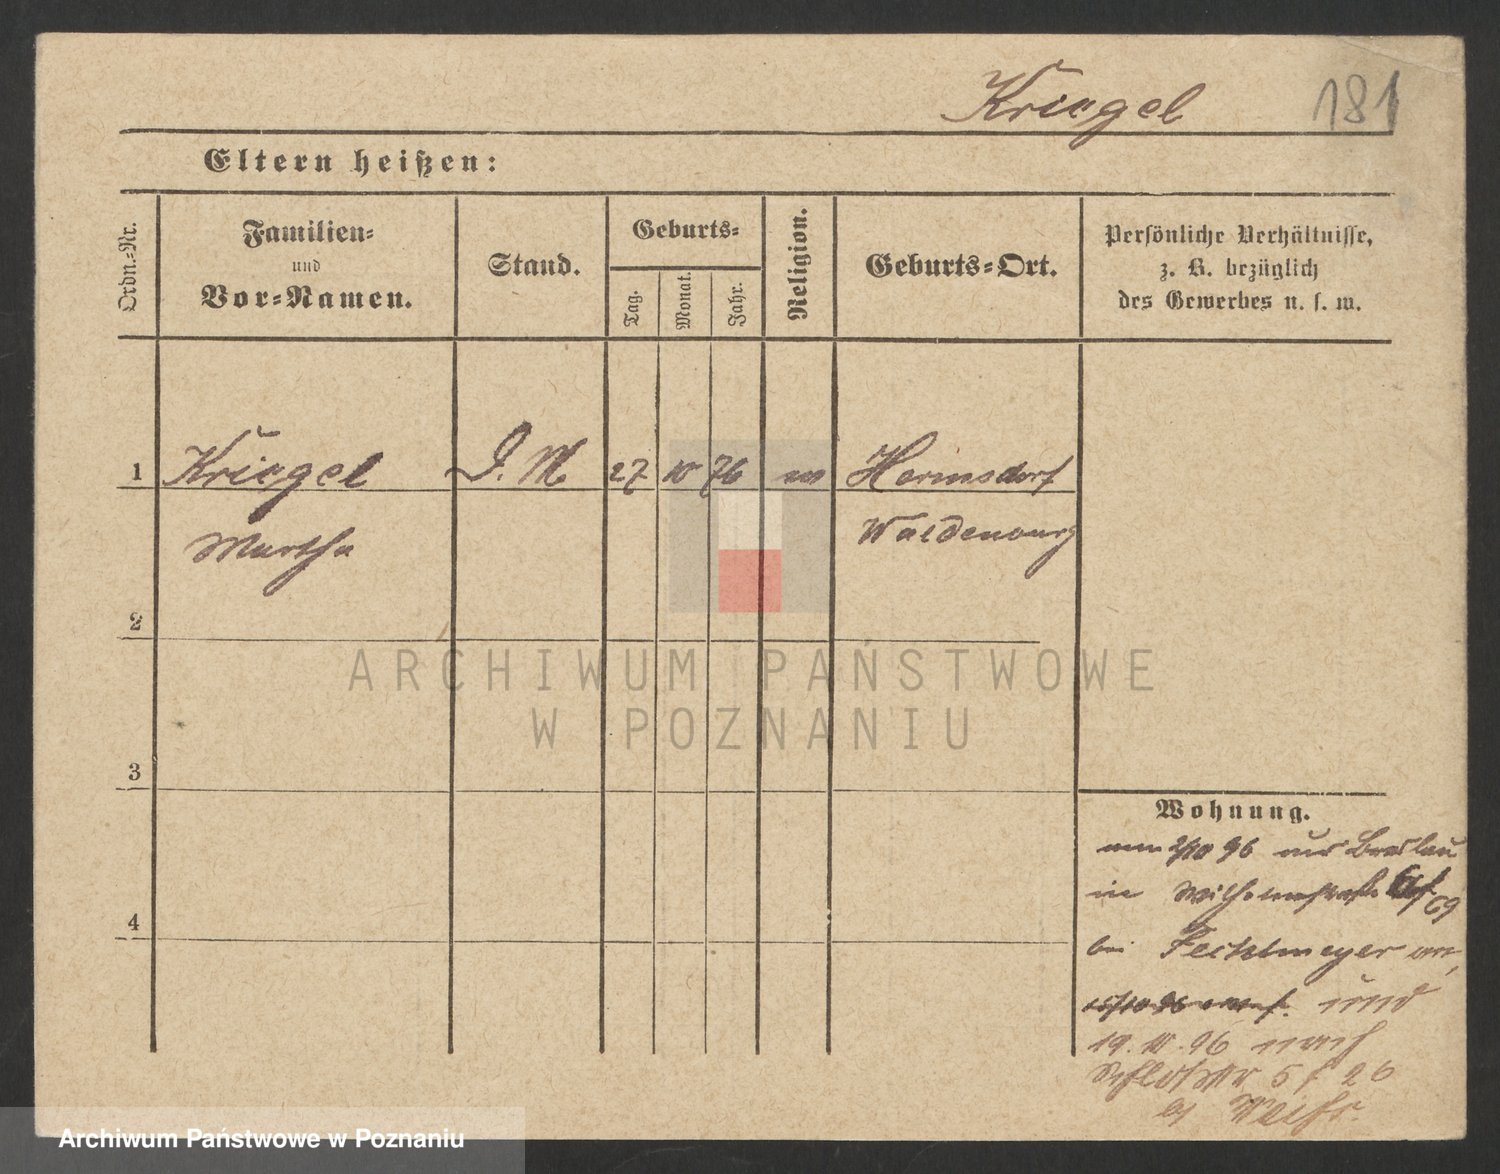 Kriegel 181
Eltern heißen:
Ordn.-Nr.
Familien-
und
Vor-Namen.
Stand.
Geburts-
Tag.
Monat.
Jahr.
Religion.
Geburts-Ort.
Persönliche Verhältnisse,
z. B. bezüglich
des Gewerbes u. s. w.
1 Kriegel D. M 27 10 76 Hermsdorf
Martha Waldenburg
2
3
4
ARCHIWUM PAŃSTWOWE
W POZNANIU
Wohnung.
2/10 96 aus Breslau
in Wilhelmstraße 69
bei Fechtmeyer
und
19. 10. 96 nach
Schloßstr 5 26
Archiwum Państwowe w Poznaniu